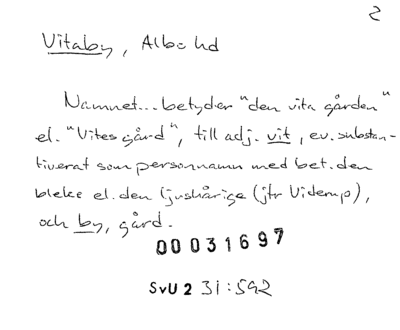 2
Vitaby, Albo hd
Namnet... betyder "den vita gården"
el. "Vites gård", till adj. vit, ev. substan-
tiverat som personnamn med bet. den
bleke el. den ljushårige (jfr Viderup),
och by, gård.
00031697
SvU 2 31:592